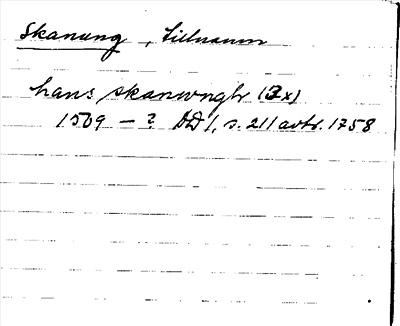 Skanung, Tillnamn
hans skanwngh (3x)
1509 - ? DD 1, s. 211 avtr. 1758